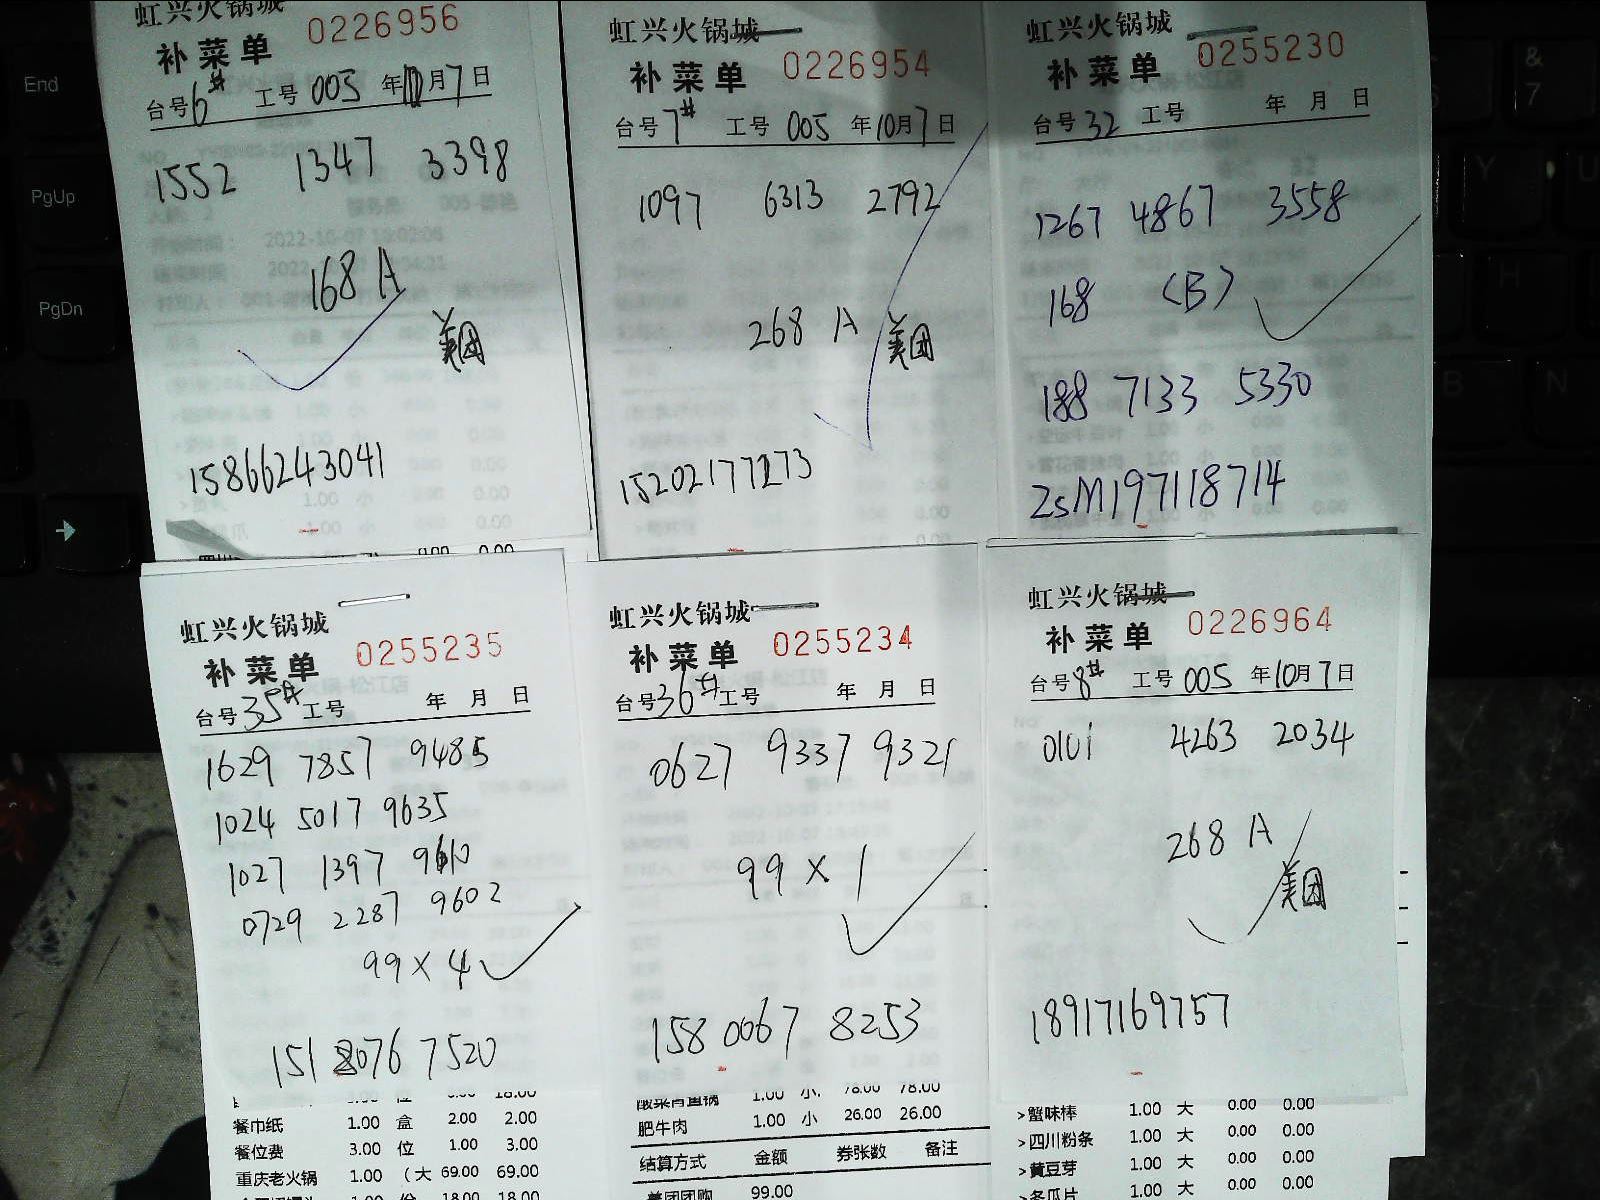 虹兴火锅城
补菜单 0226956
台号 6# 工号 005 年10月7日
1552 1347 3398
168 A
美团
15866243041
虹兴火锅城
补菜单 0226954
台号 7# 工号 005 年10月7日
1097 6313 2792
268 A 美团
15202177173
虹兴火锅城
补菜单 0255230
台号 32 工号 年 月 日
1267 4867 3558
168 (B)
188 7133 5330
ZSM197118714
虹兴火锅城
补菜单 0255235
台号 35# 工号 年 月 日
1629 7857 9485
1024 5017 9635
1027 1397 9610
0729 2287 9602
99×4
151 8076 7520
餐巾纸 1.00 盒 2.00 2.00
餐位费 3.00 位 1.00 3.00
重庆老火锅 1.00 (大 69.00 69.00
虹兴火锅城
补菜单 0255234
台号 36# 工号 年 月 日
0627 9337 9321
99×1
158 0067 8253
肥牛肉 1.00 小 26.00 26.00
结算方式 金额 券张数 备注
美团团购 99.00
虹兴火锅城
补菜单 0226964
台号 8# 工号 005 年10月7日
0101 4263 2034
268 A
美团
18917169757
>蟹味棒 1.00 大 0.00 0.00
>四川粉条 1.00 大 0.00 0.00
>黄豆芽 1.00 大 0.00 0.00
>冬瓜片 1.00 大 0.00 0.00